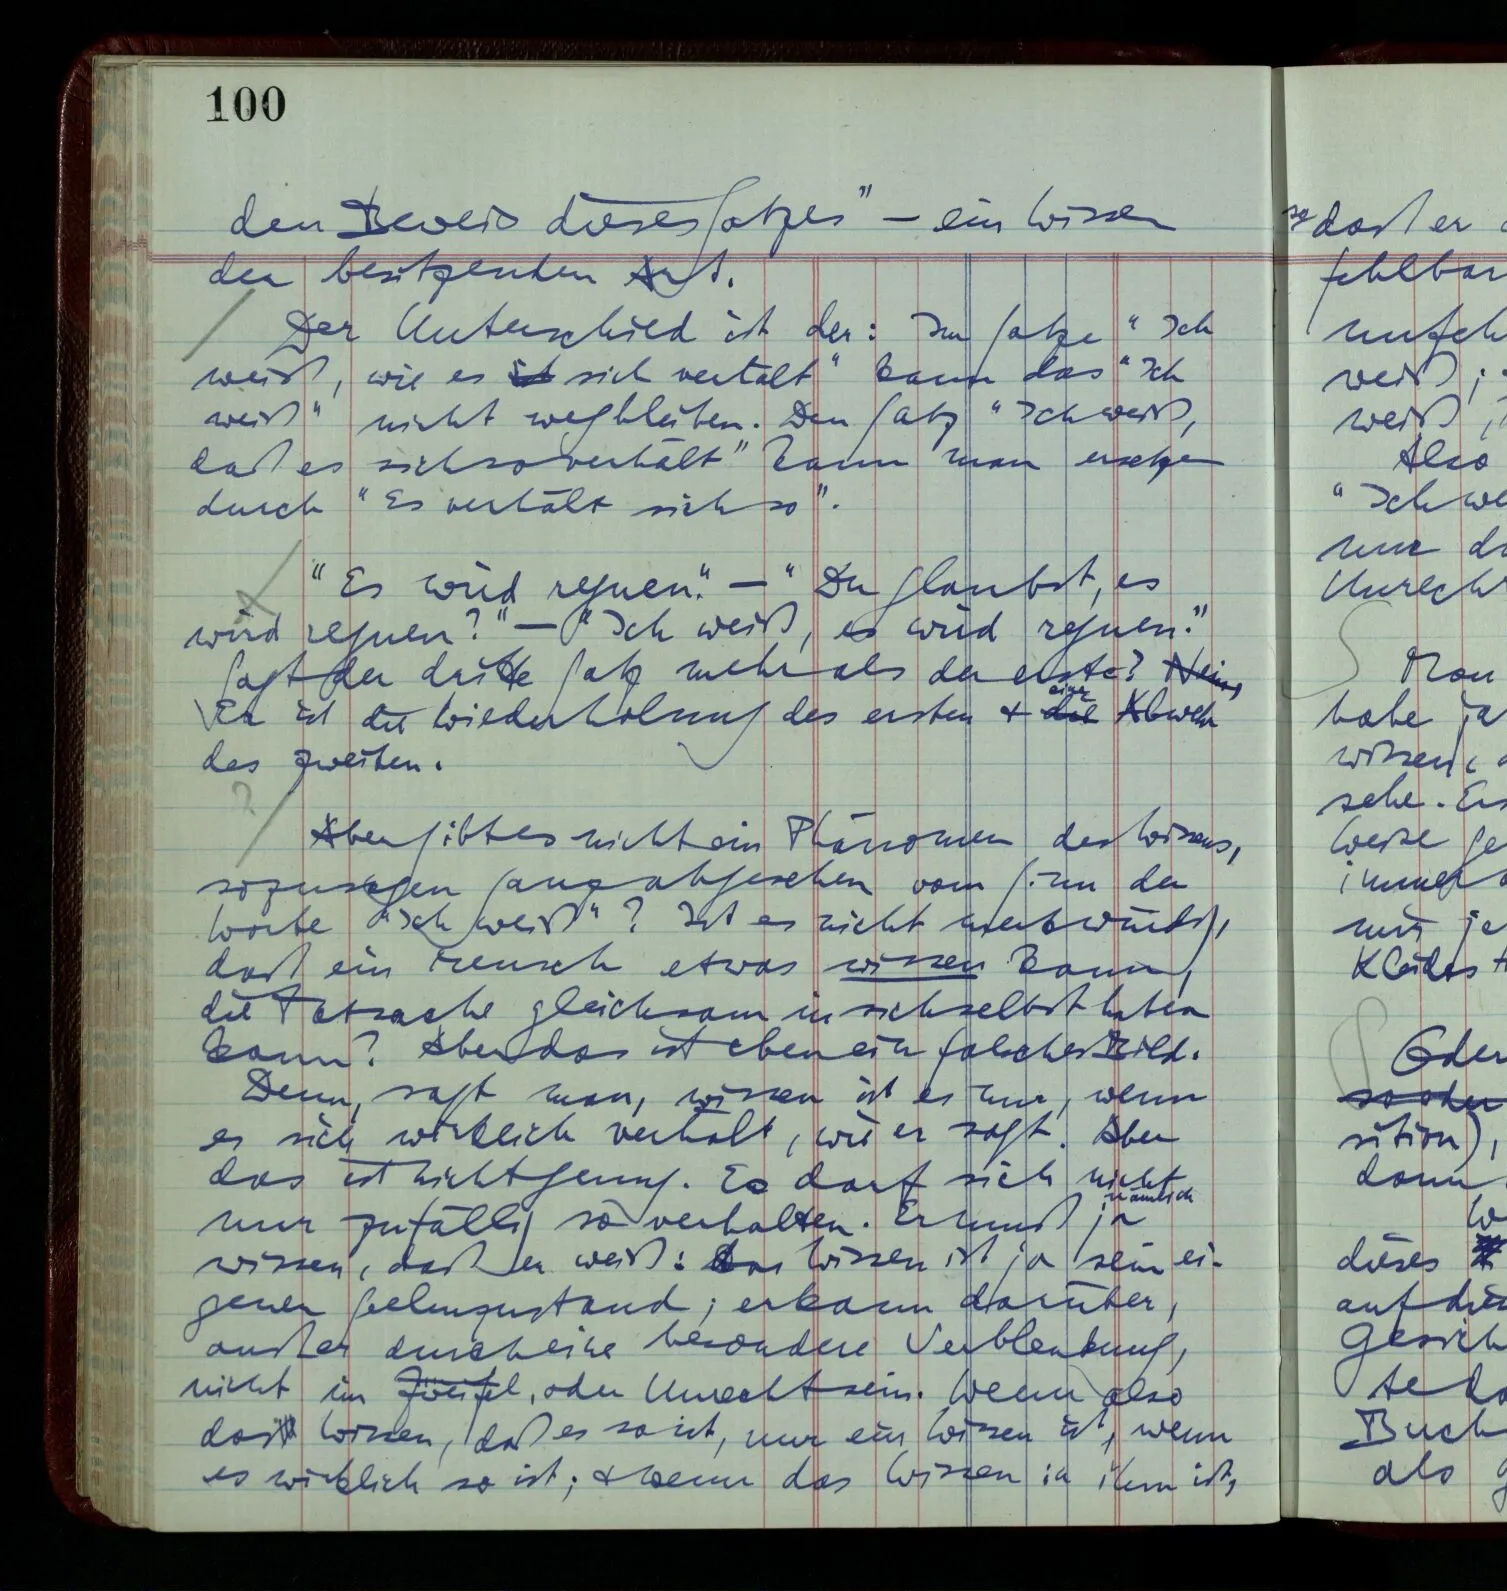 100
den Beweis dieses Satzes” – ein Wissen
der besitzenden Art.
Der Unterschied ist der: Im Satze “Ich
weiß, wie es ist sich verhält” kann das “Ich
weiß” nicht wegbleiben. Den Satz “Ich weiß,
daß es sich so verhält” kann man ersetzen
durch “Es verhält sich so”.
“Es wird regnen.” – “Du glaubst, es
wird regnen?” – “Ich weiß, es wird regnen.”
Sagt der dritte Satz mehr als der erste? Nein,
Er ist die Wiederholung des ersten & die eine Abwehr
des zweiten.
?
Aber gibt es nicht ein Phänomen des Wissens,
sozusagen ganz abgesehen vom Sinn der
Worte “Ich weiß”? Ist es nicht merkwürdig,
daß ein Mensch etwas wissen kann,
die Tatsache gleichsam in sich selbst haben
kann? Aber das ist eben ein falsches Bild.
Denn, sagt man, wissen ist es nur, wenn
es sich wirklich verhält, wie er sagt. Aber
das ist nicht genug. Es darf sich nicht
nur zufällig so verhalten. Er muß ja nämlich
wissen, daß er weiß: das Wissen ist ja sein ei-
gener Seelenzustand; er kann darüber,
außer durch eine besondere Verblendung,
nicht im Zweifel, oder Unrecht sein. Wenn also
das Wissen, daß es so ist, nur ein Wissen ist, wenn
es wirklich so ist; & wenn das Wissen in ihm ist,
so daß er
fehlbar
unfeh
weiß;
weiß,
Also
“Ich we
nur
Unrecht
Man
habe ja
wissen,
sehe. Es
Weise ge
immer
mir je
Kleides
Oder
so oder
sition),
dann
W
dieses
auf die
Gesich
te da
Buch
als g